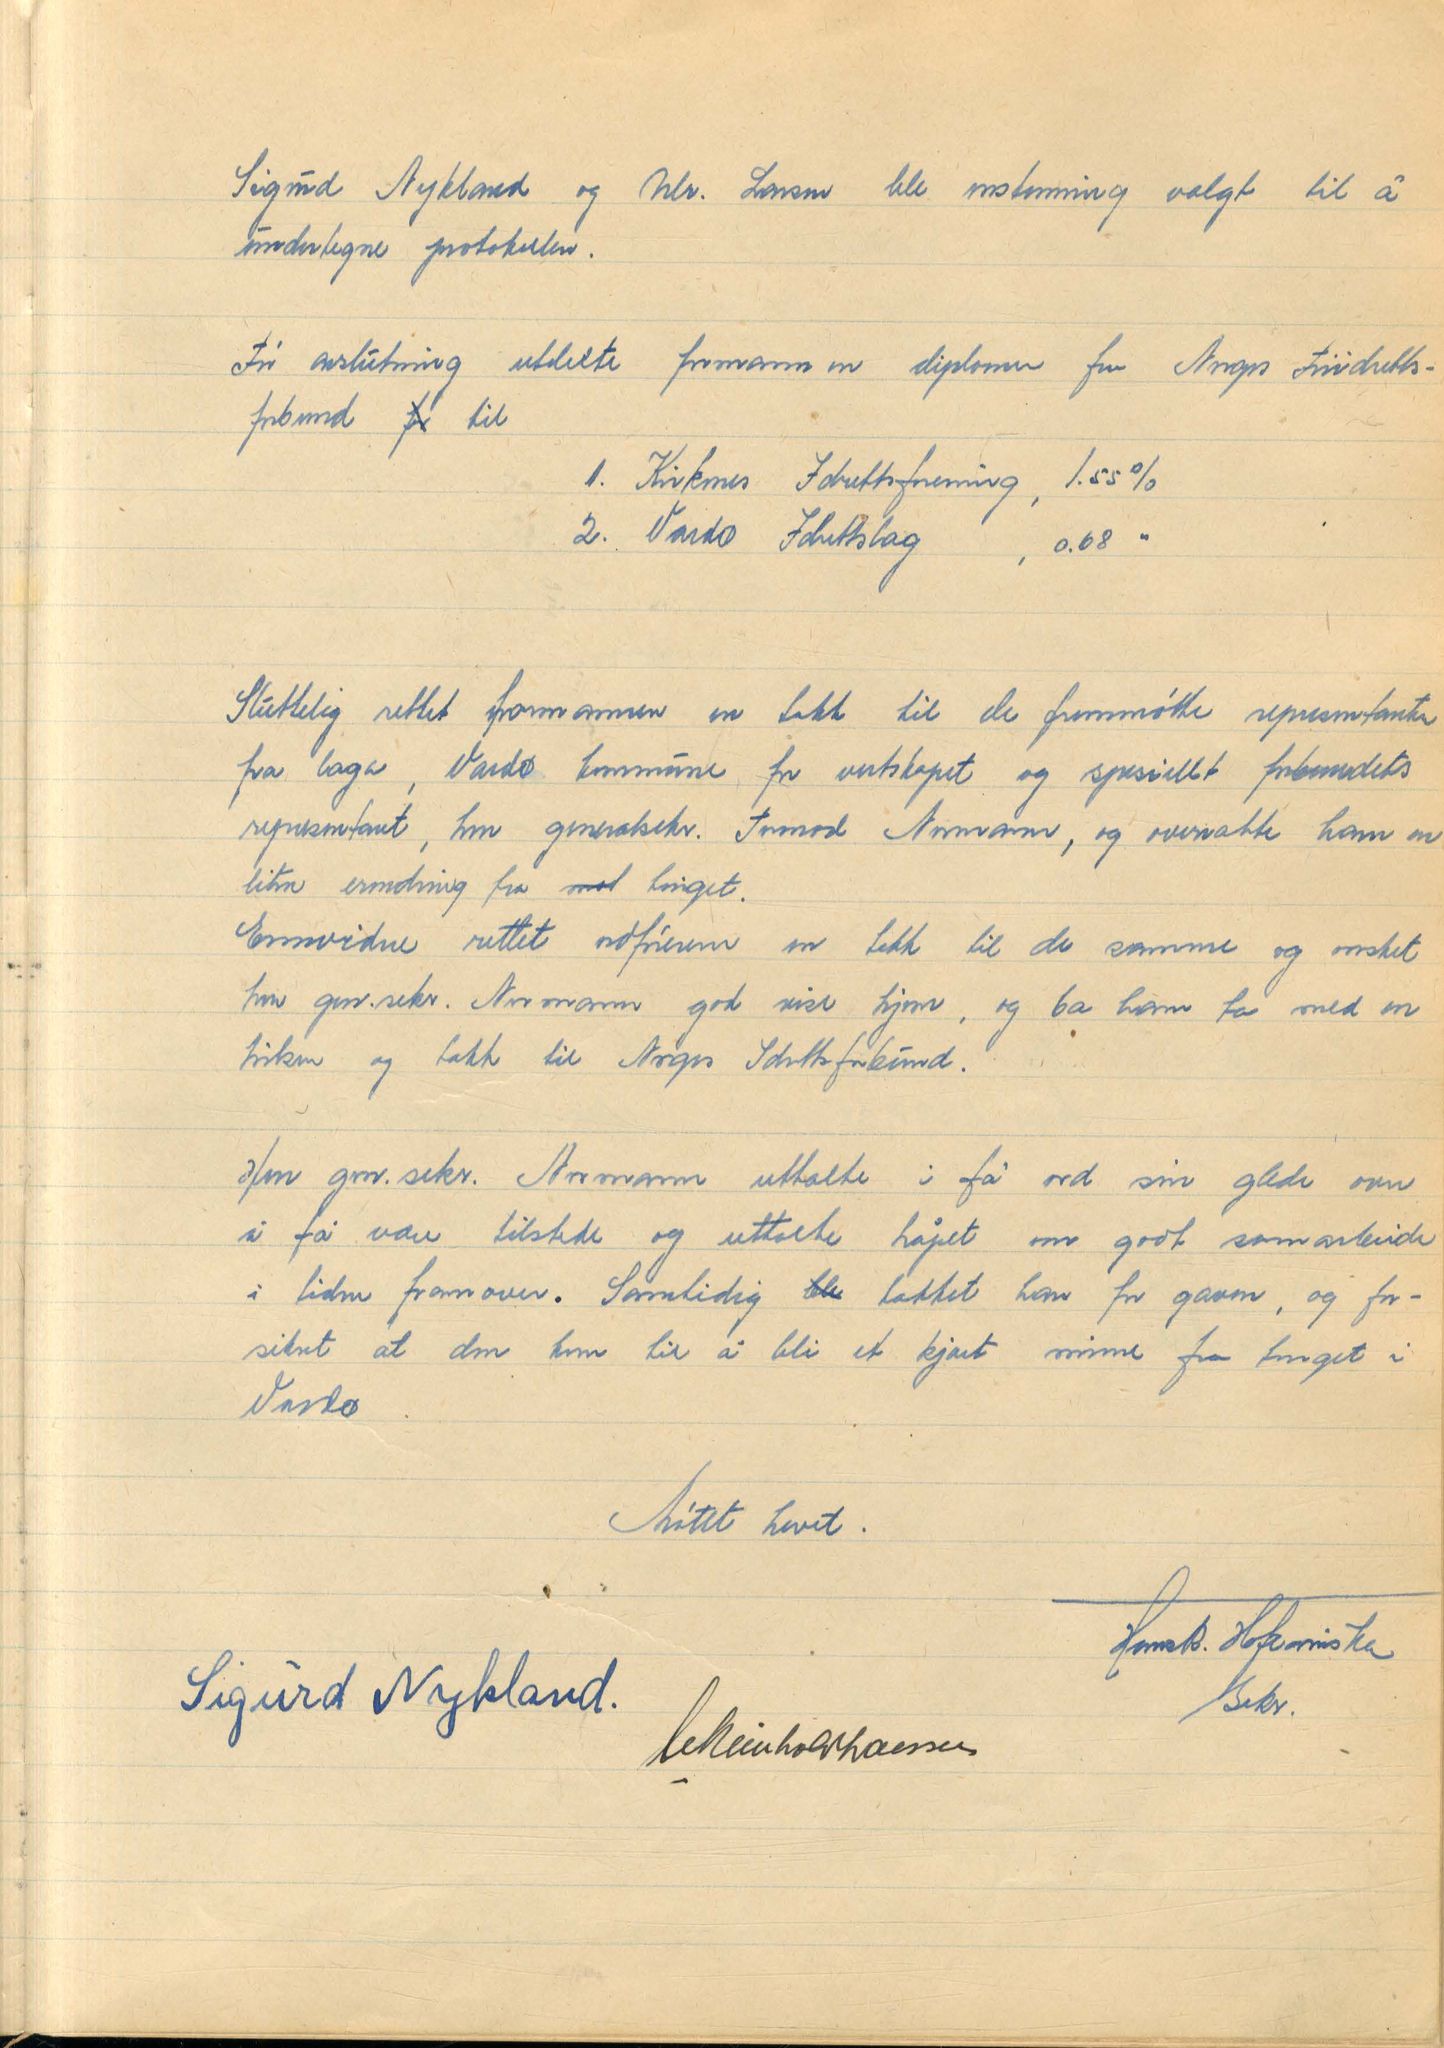 Sigurd Nykland og Ulr. Larsen ble enstemmig valgt til å
undertegne protokollen.
Før avslutning utdelte formannen diplomer fra Norges Friidretts-
forbund for til
1. Kirkenes Idrettsforening, 1.55 %
2. Vardø Idrettslag, 0.68 "
Sluttelig rettet formannen en takk til de fremmøtte representanter
fra laga, Vardø kommune for vertskapet og spesiellt forbundets
representant, herr generalsekr. Tormod Normann, og overrakte ham en
liten erindring fra mot tinget.
Ennvidere rettet ordføreren en takk til de samme og ønsket
herr gen.sekr. Normann god reise hjem, og ba ham ta med en
hilsen og takk til Norges Idrettsforbund.
Herr gen.sekr. Normann uttalte i få ord sin glede over
å få være tilstede og uttalte håpet om godt samarbeide
i tiden framover. Samtidig ble takket han for gaven, og for-
sikret at den kom til å bli et kjært minne fra tinget i
Vardø
Møtet hevet.
Sekr.
Sigurd Nykland.